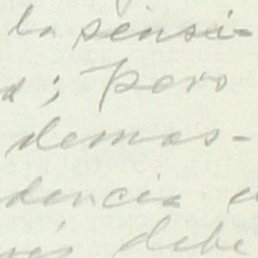 la sensi-
; Pero
demas-
dencia
debe